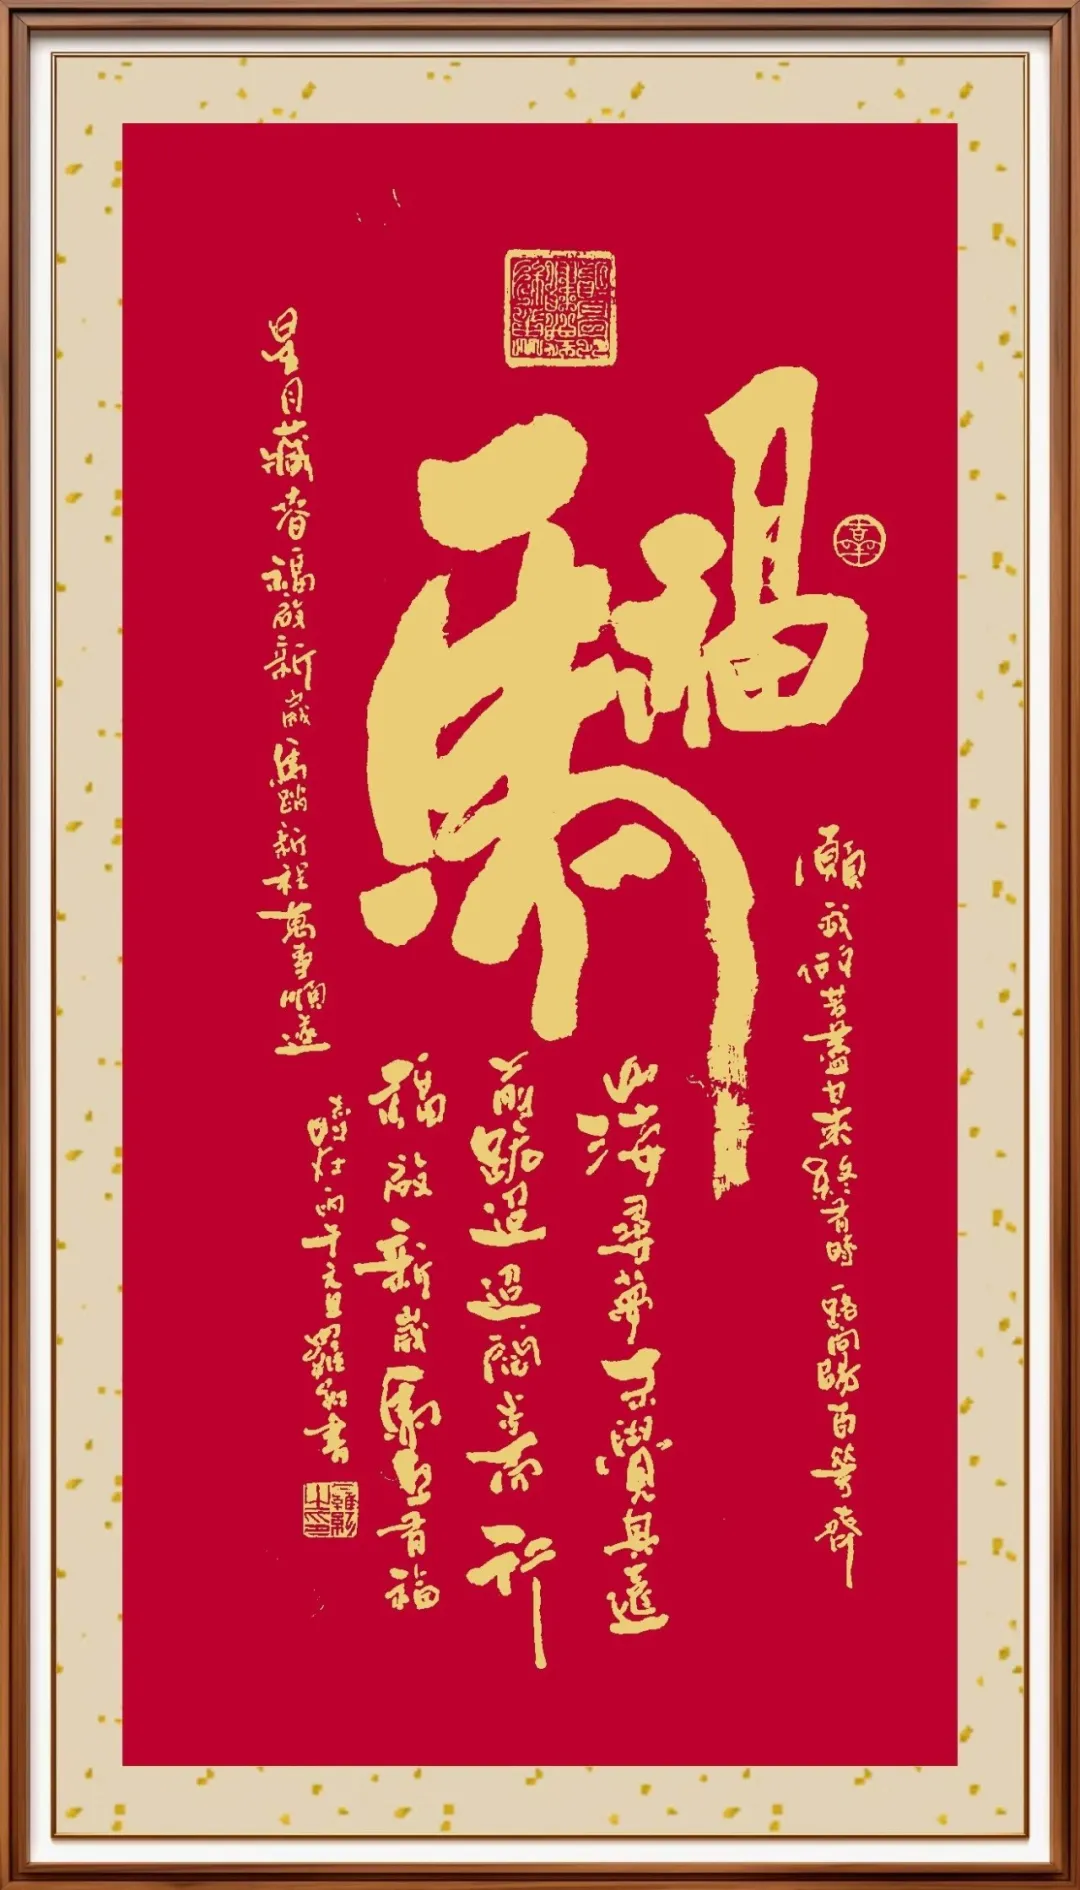 福
馬
願我们苦盡甘來終有時一路向陽
山海尋夢不覺其遠
前路迢迢闊步而行
福啟新歲馬有福
星月藏春福啟新歲馬踏新程萬事順遂
時在丙午元旦羅書